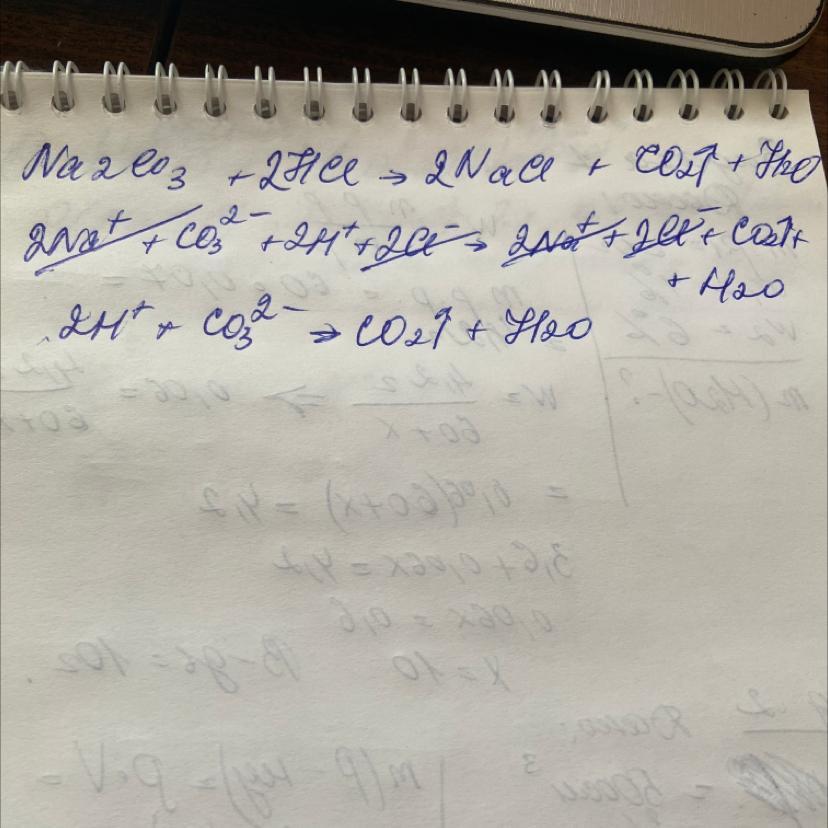 Na2CO3 + 2HCl → 2NaCl + CO2↑ + H2O
2Na⁺ + CO3²⁻ + 2H⁺ + 2Cl⁻ → 2Na⁺ + 2Cl⁻ + CO2↑ +
+ H2O
2H⁺ + CO3²⁻ → CO2↑ + H2O